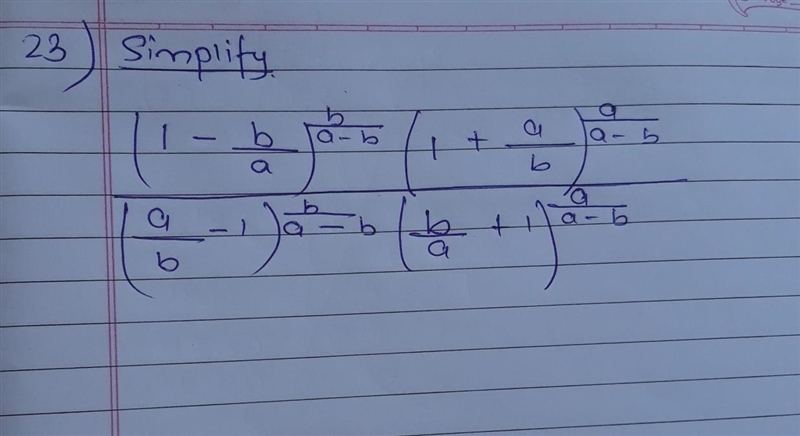 23) Simplify.
(1 - b/a)^(b/(a-b)) (1 + a/b)^(a/(a-b))
(a/b - 1)^(b/(a-b)) (b/a + 1)^(a/(a-b))